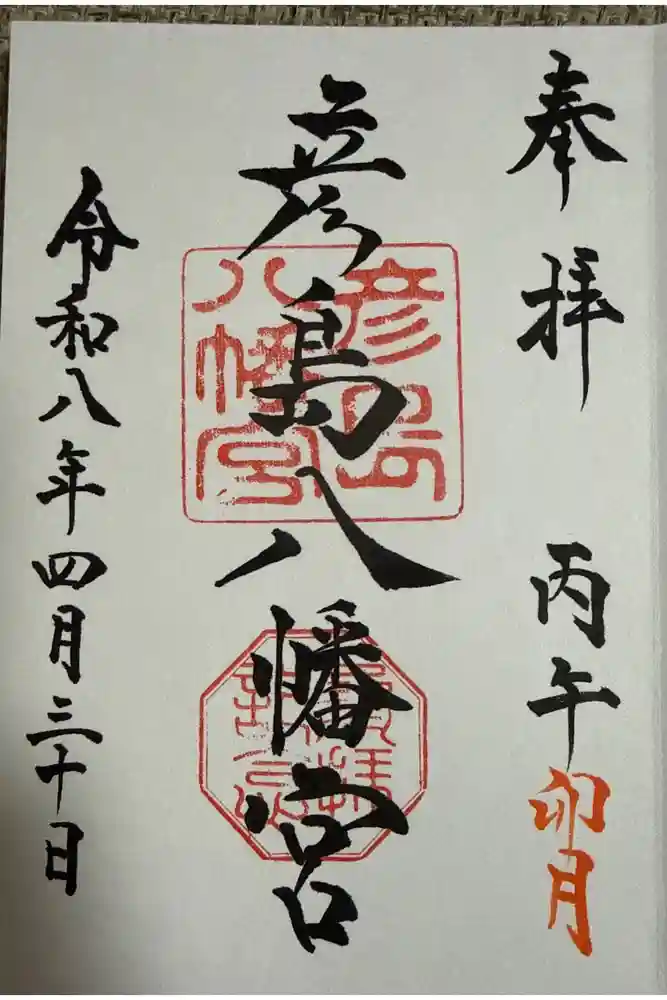 奉拝
丙午
卯月
彦島八幡宮
彦島
八幡宮
令和八年四月三十日